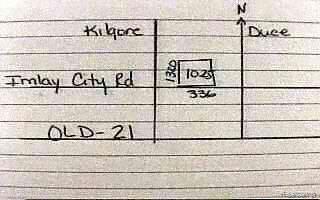 N
Kilgore Duce
Imlay City Rd 1320 1025
336
OLD-21